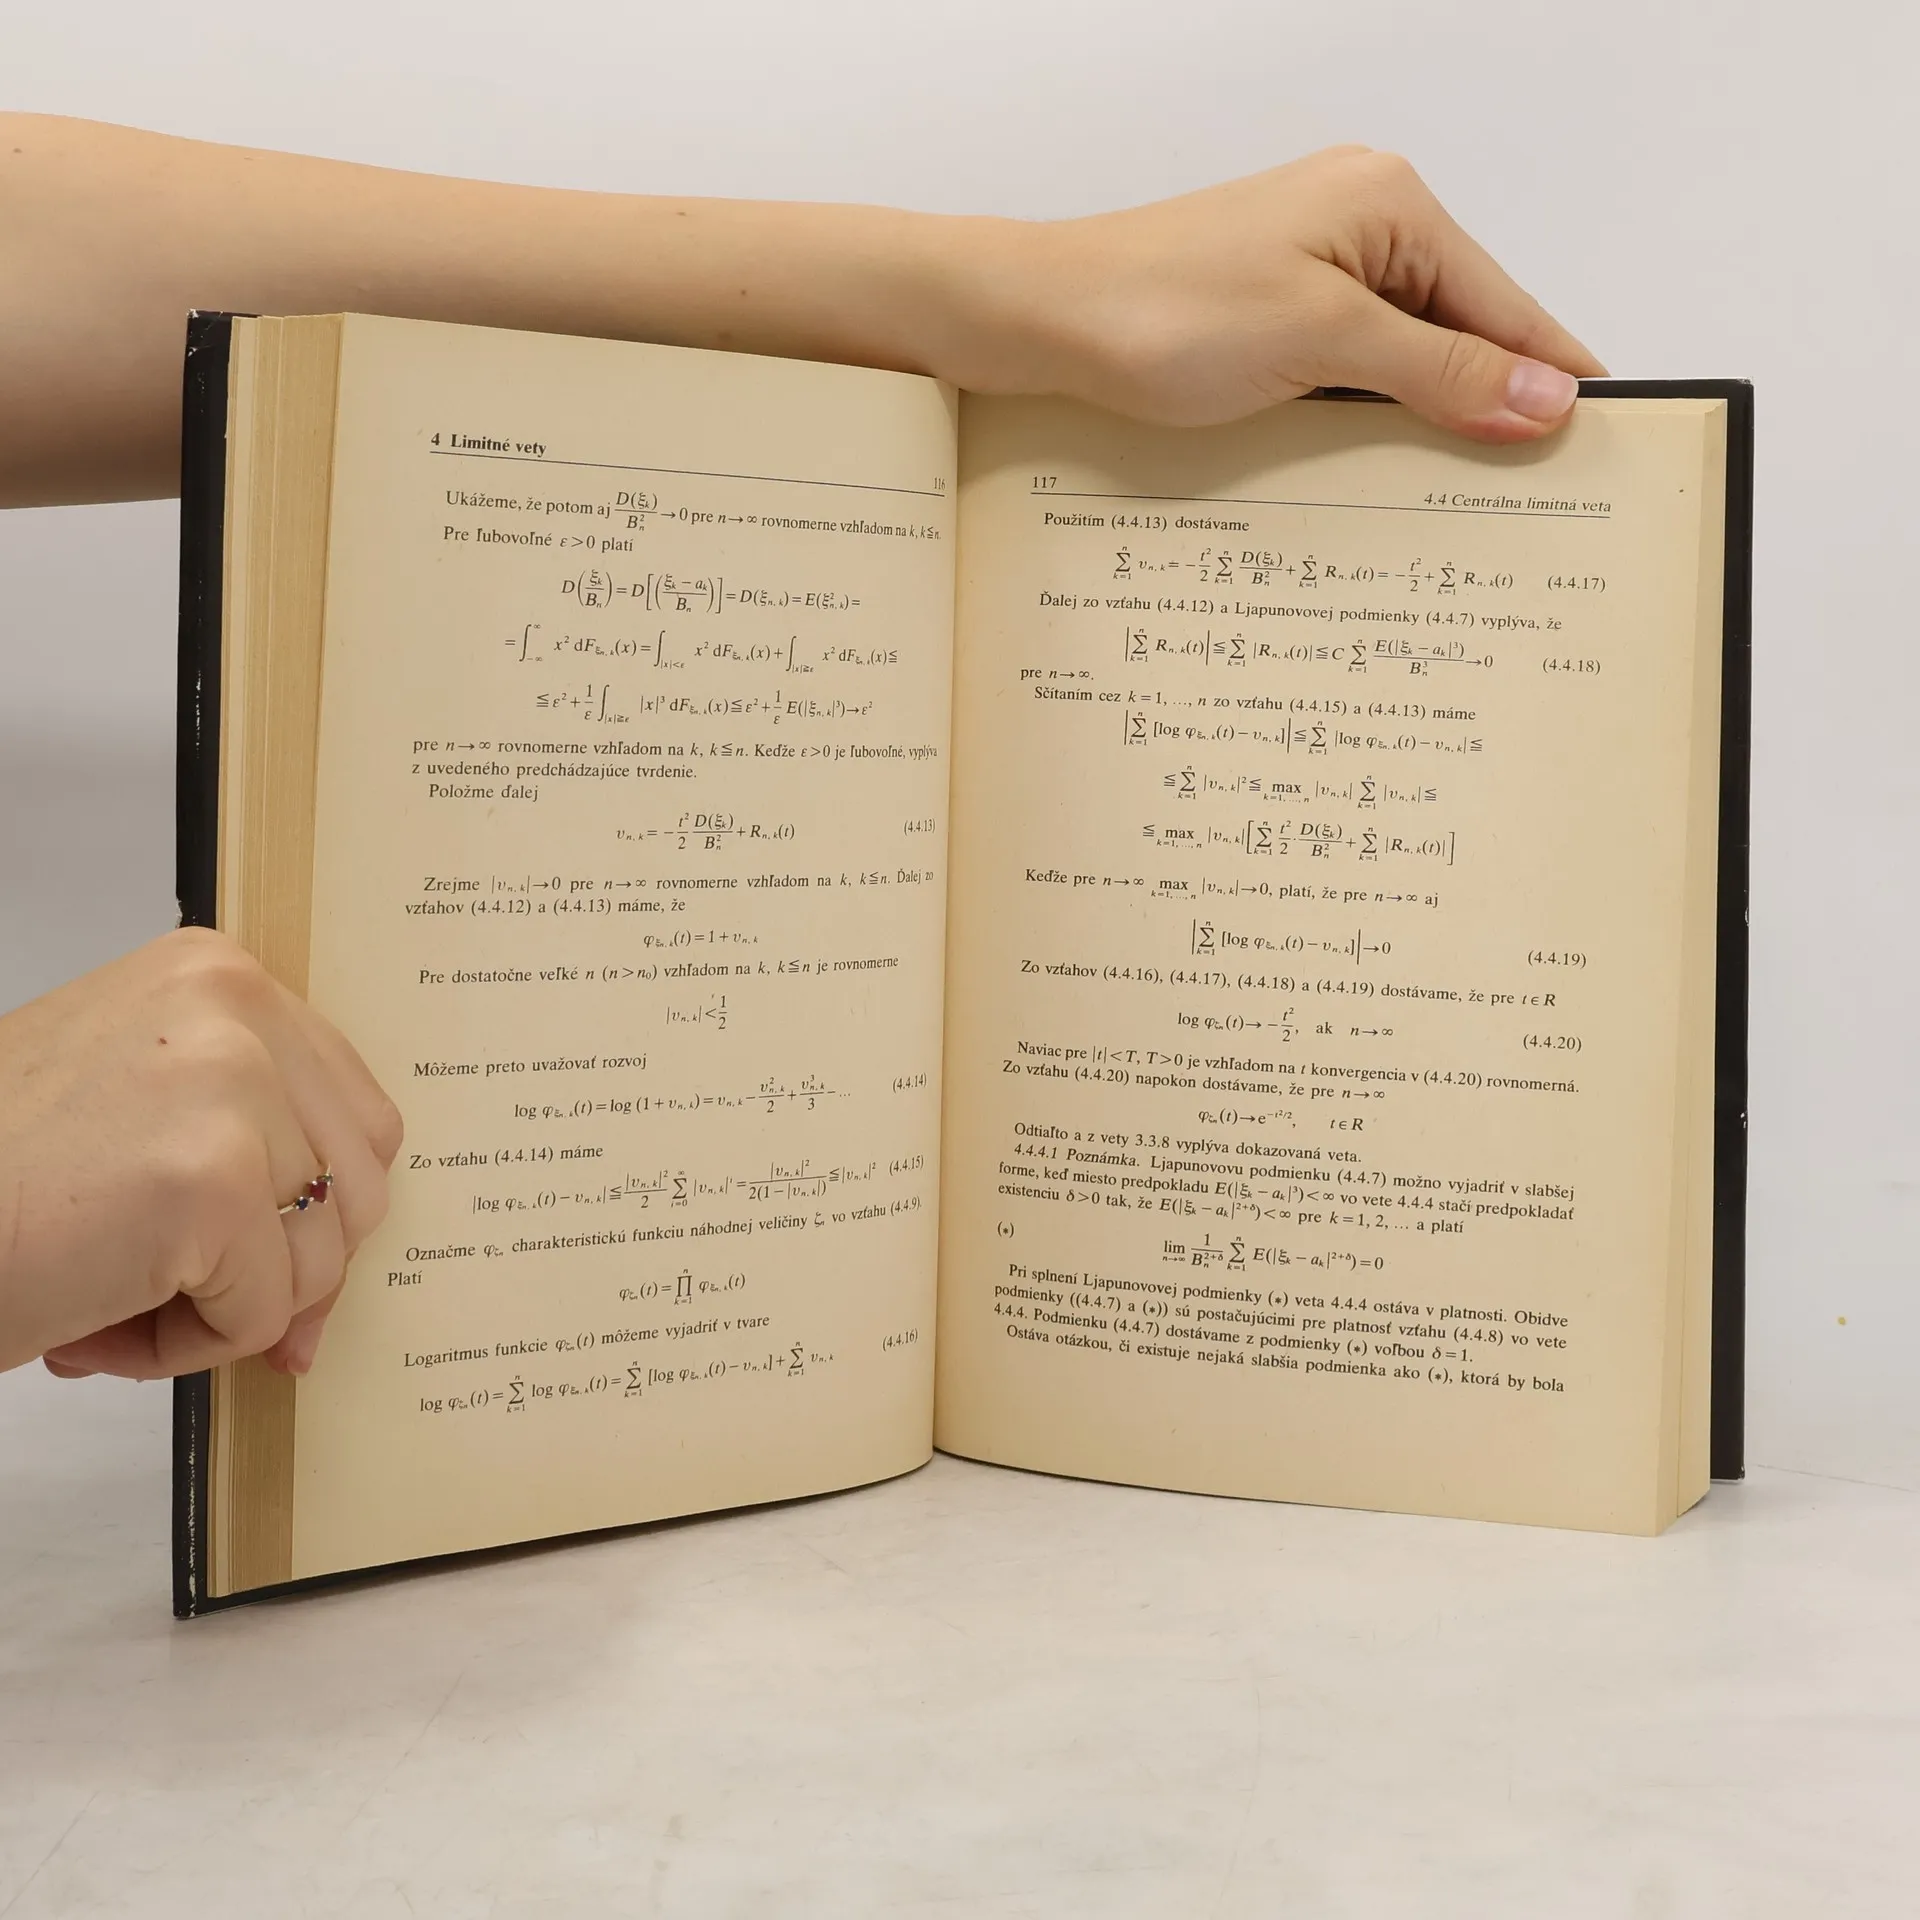 4 Limitné vety
116
Ukážeme, že potom aj D(ξₖ)/Bₙ² → 0 pre n → ∞ rovnomerne vzhľadom na k, k ≦ n.
Pre ľubovoľné ε > 0 platí
D(ξₖ/Bₙ) = D[((ξₖ − aₖ)/Bₙ)] = D(ξₙ,ₖ) = E(ξ²ₙ,ₖ) =
= ∫_{−∞}^{∞} x² dF_{ξₙ,ₖ}(x) = ∫_{|x|<ε} x² dF_{ξₙ,ₖ}(x) + ∫_{|x|≧ε} x² dF_{ξₙ,ₖ}(x) ≦
≦ ε² + 1/ε ∫_{|x|≧ε} |x|³ dF_{ξₙ,ₖ}(x) ≦ ε² + 1/ε E(|ξₙ,ₖ|³) → ε²
pre n → ∞ rovnomerne vzhľadom na k, k ≦ n. Keďže ε > 0 je ľubovoľné, vyplýva
z uvedeného predchádzajúce tvrdenie.
Položme ďalej
υₙ,ₖ = − t²/2 D(ξₖ)/Bₙ² + Rₙ,ₖ(t) (4.4.13)
Zrejme |υₙ,ₖ| → 0 pre n → ∞ rovnomerne vzhľadom na k, k ≦ n. Ďalej zo
vzťahov (4.4.12) a (4.4.13) máme, že
φ_{ξₙ,ₖ}(t) = 1 + υₙ,ₖ
Pre dostatočne veľké n (n > n₀) vzhľadom na k, k ≦ n je rovnomerne
|υₙ,ₖ| < 1/2
Môžeme preto uvažovať rozvoj
log φ_{ξₙ,ₖ}(t) = log (1 + υₙ,ₖ) = υₙ,ₖ − υ²ₙ,ₖ/2 + υ³ₙ,ₖ/3 − … (4.4.14)
Zo vzťahu (4.4.14) máme
|log φ_{ξₙ,ₖ}(t) − υₙ,ₖ| ≦ |υₙ,ₖ|²/2 ∑_{i=0}^{∞} |υₙ,ₖ|ⁱ = |υₙ,ₖ|²/2(1 − |υₙ,ₖ|) ≦ |υₙ,ₖ|² (4.4.15)
Označme φ_{ζₙ} charakteristickú funkciu náhodnej veličiny ζₙ vo vzťahu (4.4.9).
Platí
φ_{ζₙ}(t) = ∏_{k=1}^{n} φ_{ξₙ,ₖ}(t)
Logaritmus funkcie φ_{ζₙ}(t) môžeme vyjadriť v tvare
log φ_{ζₙ}(t) = ∑_{k=1}^{n} log φ_{ξₙ,ₖ}(t) = ∑_{k=1}^{n} [log φ_{ξₙ,ₖ}(t) − υₙ,ₖ] + ∑_{k=1}^{n} υₙ,ₖ (4.4.16)
117
4.4 Centrálna limitná veta
Použitím (4.4.13) dostávame
∑_{k=1}^{n} υₙ,ₖ = − t²/2 ∑_{k=1}^{n} D(ξₖ)/Bₙ² + ∑_{k=1}^{n} Rₙ,ₖ(t) = − t²/2 + ∑_{k=1}^{n} Rₙ,ₖ(t) (4.4.17)
Ďalej zo vzťahu (4.4.12) a Ljapunovovej podmienky (4.4.7) vyplýva, že
|∑_{k=1}^{n} Rₙ,ₖ(t)| ≦ ∑_{k=1}^{n} |Rₙ,ₖ(t)| ≦ C ∑_{k=1}^{n} E(|ξₖ − aₖ|³)/Bₙ³ → 0 (4.4.18)
pre n → ∞.
Sčítaním cez k = 1, …, n zo vzťahu (4.4.15) a (4.4.13) máme
|∑_{k=1}^{n} [log φ_{ξₙ,ₖ}(t) − υₙ,ₖ]| ≦ ∑_{k=1}^{n} |log φ_{ξₙ,ₖ}(t) − υₙ,ₖ| ≦
≦ ∑_{k=1}^{n} |υₙ,ₖ|² ≦ max_{k=1, …, n} |υₙ,ₖ| ∑_{k=1}^{n} |υₙ,ₖ| ≦
≦ max_{k=1, …, n} |υₙ,ₖ| [∑_{k=1}^{n} t²/2 · D(ξₖ)/Bₙ² + ∑_{k=1}^{n} |Rₙ,ₖ(t)|]
Keďže pre n → ∞ max_{k=1, …, n} |υₙ,ₖ| → 0, platí, že pre n → ∞ aj
|∑_{k=1}^{n} [log φ_{ξₙ,ₖ}(t) − υₙ,ₖ]| → 0 (4.4.19)
Zo vzťahov (4.4.16), (4.4.17), (4.4.18) a (4.4.19) dostávame, že pre t ∈ R
log φ_{ζₙ}(t) → − t²/2, ak n → ∞ (4.4.20)
Naviac pre |t| < T, T > 0 je vzhľadom na t konvergencia v (4.4.20) rovnomerná.
Zo vzťahu (4.4.20) napokon dostávame, že pre n → ∞
φ_{ζₙ}(t) → e^{−t²/2}, t ∈ R
Odtiaľto a z vety 3.3.8 vyplýva dokazovaná veta.
4.4.4.1 Poznámka. Ljapunovovu podmienku (4.4.7) možno vyjadriť v slabšej
forme, keď miesto predpokladu E(|ξₖ − aₖ|³) < ∞ vo vete 4.4.4 stačí predpokladať
existenciu δ > 0 tak, že E(|ξₖ − aₖ|^{2+δ}) < ∞ pre k = 1, 2, … a platí
(∗)
lim_{n→∞} 1/Bₙ^{2+δ} ∑_{k=1}^{n} E(|ξₖ − aₖ|^{2+δ}) = 0
Pri splnení Ljapunovovej podmienky (∗) veta 4.4.4 ostáva v platnosti. Obidve
podmienky ((4.4.7) a (∗)) sú postačujúcimi pre platnosť vzťahu (4.4.8) vo vete
4.4.4. Podmienku (4.4.7) dostávame z podmienky (∗) voľbou δ = 1.
Ostáva otázkou, či existuje nejaká slabšia podmienka ako (∗), ktorá by bola